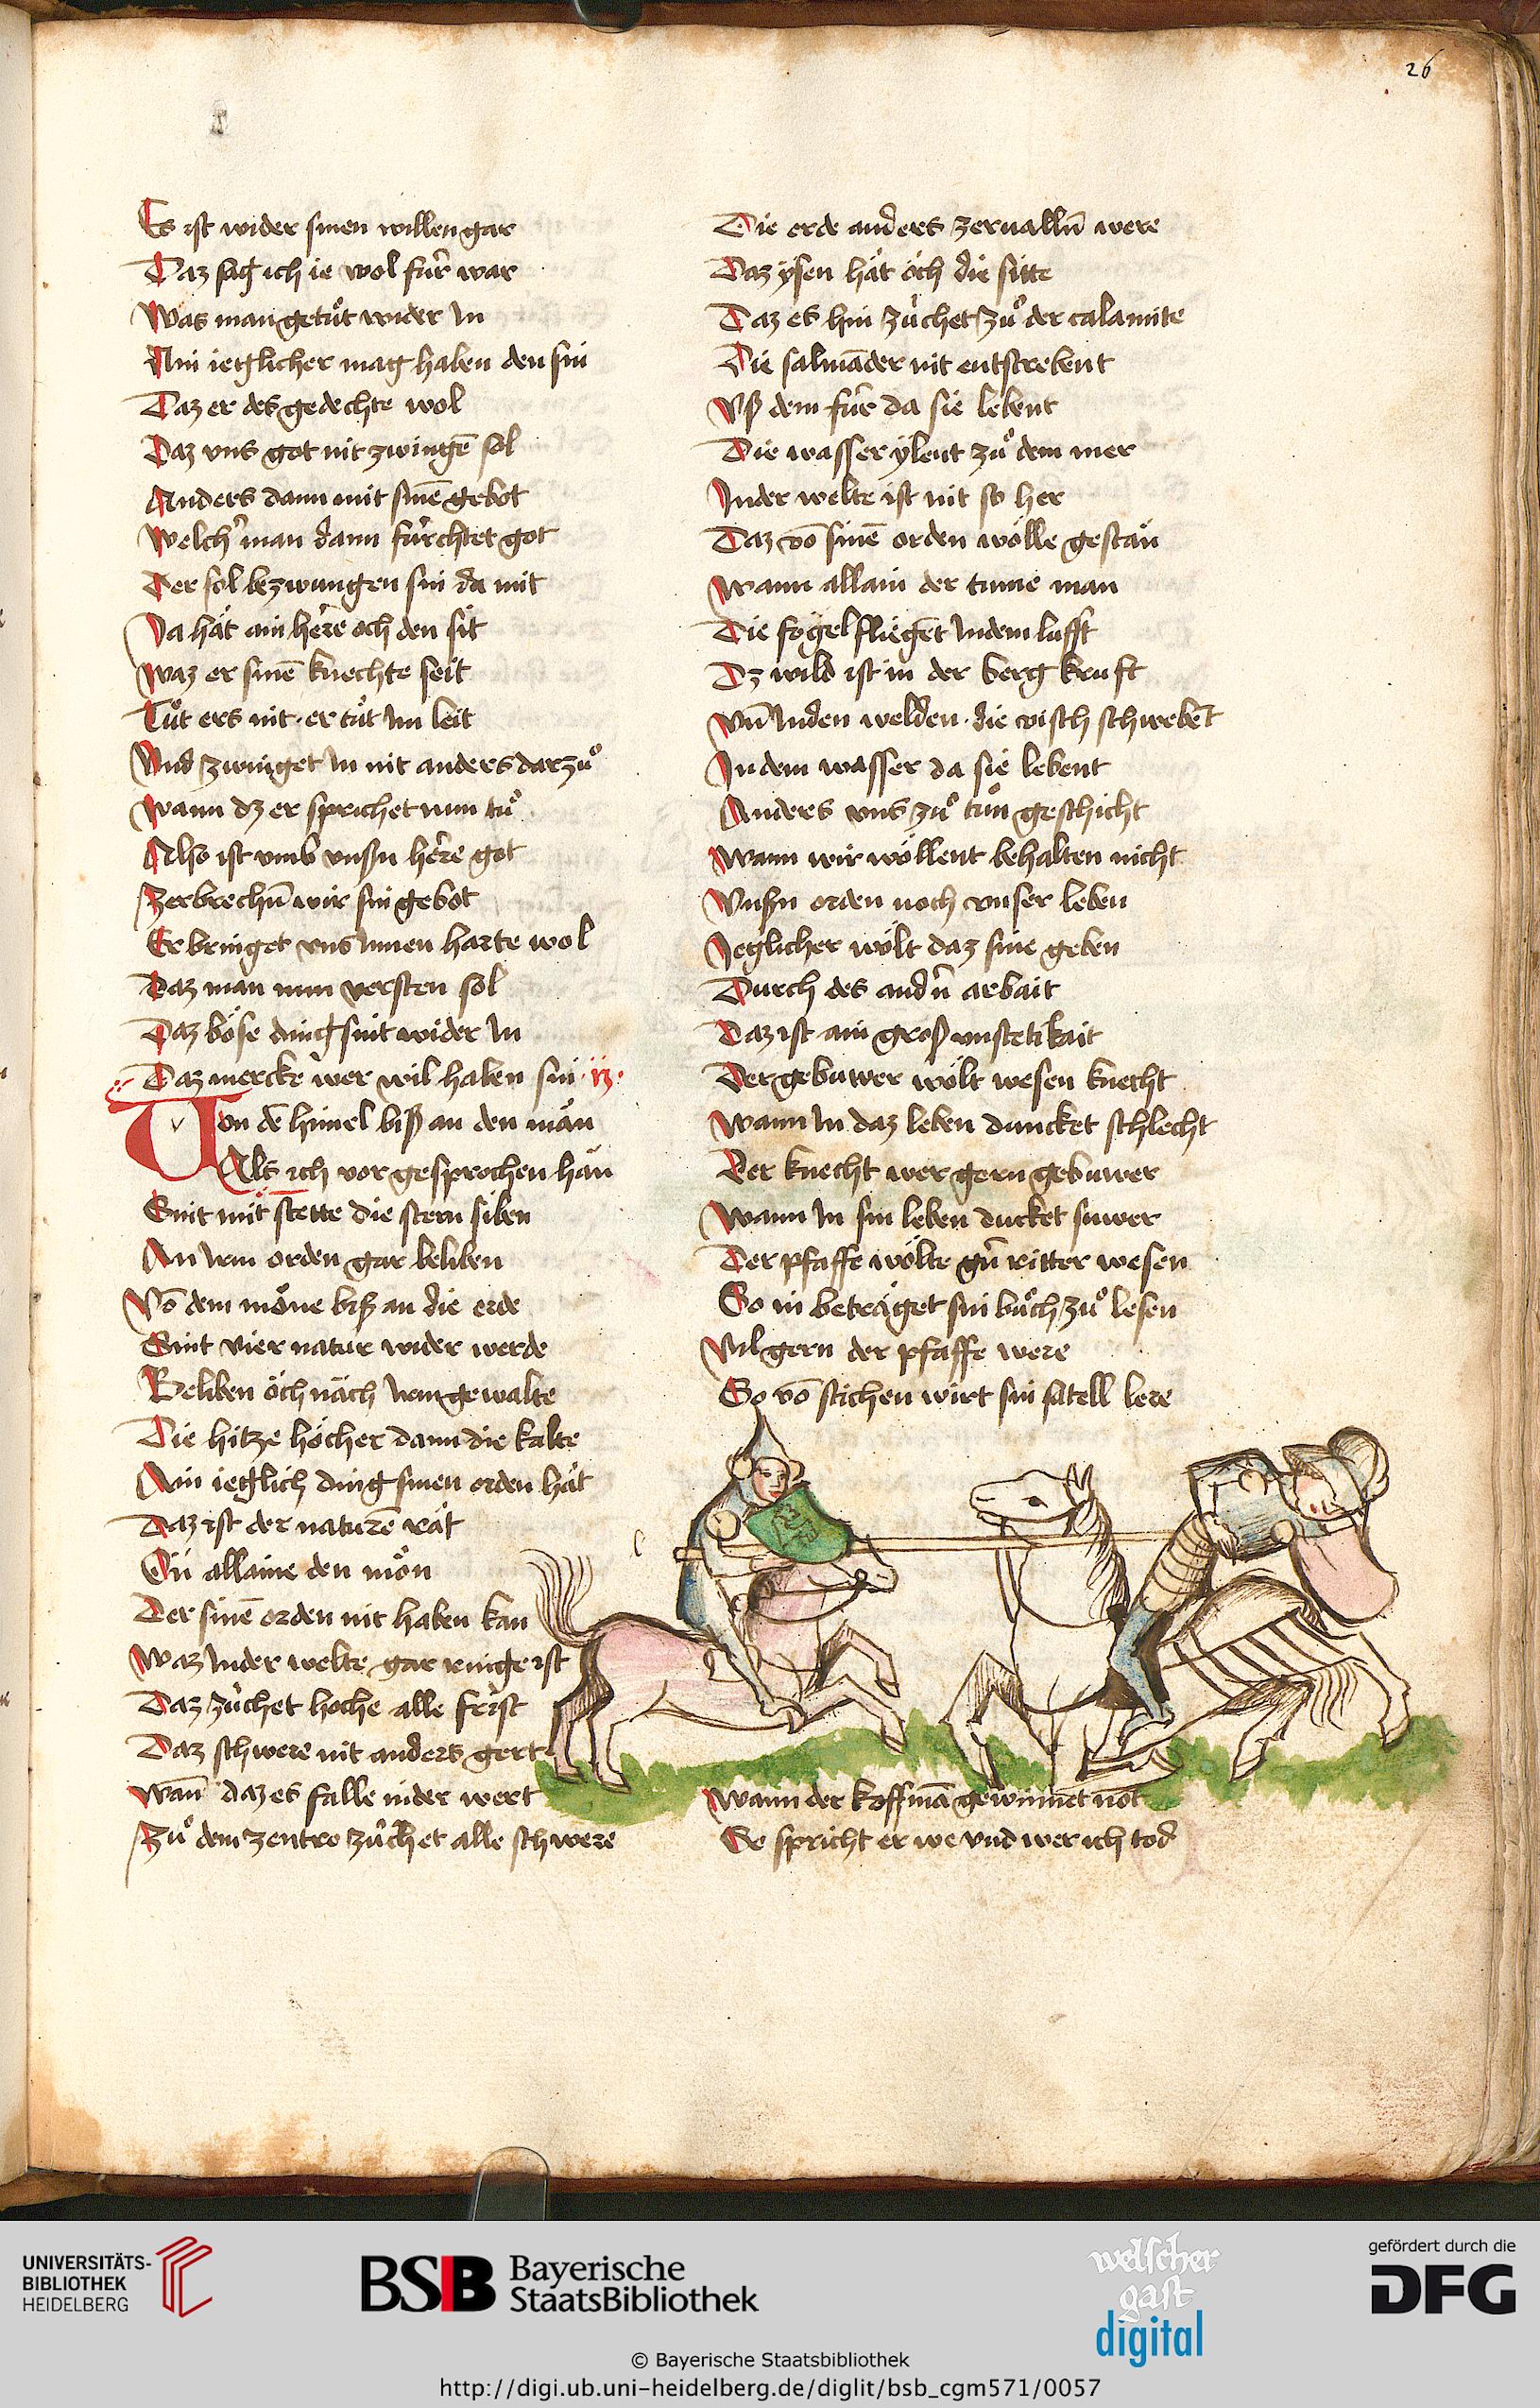 26
Es ist wider sinen willen gar
Daz sag ich ie wol für war
Was man getuͦt wider In
Ain ieglicher mag haben den sin
Daz er des gedechte wol
Daz vns got nit zwingē sol
Anders dann mit sinē gebot
Welch man dann fürchtet got
Der sol bezwungen sin da mit
Ja hät ain herre och den sit
waz er sinē knechte seit
Tuͦt ers nit · er tuͦt Im leit
Vnd zwinget In nit anders darzuͦ
wann dz er sprichet nun tuͦ
Also ist vmb vnsßn herre got
Zerbrechn̄ wir sin gebot
Er bringet vns Innen harte wol
Daz man nun versten sol
Daz böse ding sint wider In
Daz mercke wer wil haben sin
Von dē himel biß an den män
Als ich vor gesprochen hän
Sint mit stette die stern siben
An Irm orden gar beliben
Vō dem möne biß an die erde
Sint vier natur wider werde
Beliben öch näch Irm gewalte
Die hitze höcher dann die kalte
Ain ieglich ding sinen orden hät
Daz ist der naturē rät
On allaine den mön
Der sinē orden nit haben kan
Waz Inder welte gar ringe ist
Daz züchet hoche alle frist
Daz schwere nit anders gert
wan̄ daz es falle nider wert
Zuͦ dem zentro züchet alle schwere
Die erde anders zerualln̄ were
Daz ysen hät öch die sitte
Daz es hin züchet zuͦ der calamite
Die salmāder nit entstrebent
Vß dem für da sie lebent
Die wasser ylent zuͦ dem mer
Inder welte ist nit so her
Daz vō sinē orden wölle gestän
wann allain der tume man
Die fögel fliegēt Indem lufft
Dz wild ist in der berg kruft
Vn̄ Inden welden · die visch schwebēt
Indem wasser da sie lebent
Anders vns zuͦ tuͦn geschicht
Wann wir wöllent behalten nicht
Vnsßn orden noch vnser leben
Jeglicher wölt daz sine geben
Durch des andn̄ arbait
Daz ist ain groß vnstetikait
Der gebuwer wölt wesen knecht
Wann In daz leben duncket schlecht
Der knecht wer gern gebuwer
Wann In sin leben ducket suwer
Der pfaffe wölte gn̄ ritter wesen
So in beträget sin buͦch zuͦ lesen
Vil gern der pfaffe were
So vō stichen wirt sin satell lere
Wann der koffmā gewinnet not
So spricht er we vnd wer ich tod
UNIVERSITÄTS-
BIBLIOTHEK
HEIDELBERG
BSB Bayerische
StaatsBibliothek
welscher
gast
digital
gefördert durch die
DFG
© Bayerische Staatsbibliothek
http://digi.ub.uni-heidelberg.de/diglit/bsb_cgm571/0057